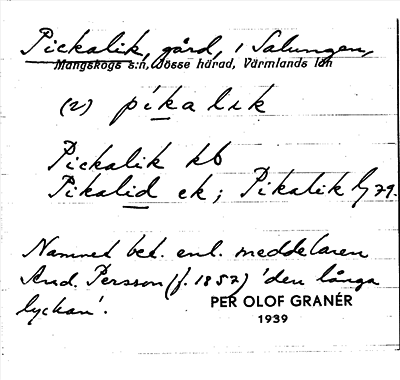 Pickalik, gård, i Salungen,
Mangskogs s:n, Jösse härad, Värmlands län
(2) pikalik
Pickalik kb
Pikalid ek; Pikalik 79.
Namnet bet. enl. meddelaren
And. Persson (f. 1852) 'den långa
lyckan'.
PER OLOF GRANÉR
1939